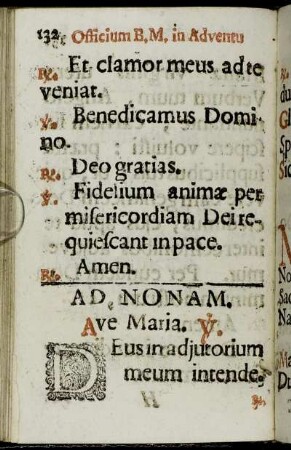 132 Officium B. M. in Adventu
℟. Et clamor meus ad te
veniat.
℣. Benedicamus Domi-
no.
℟. Deo gratias.
℣. Fidelium animæ per
misericordiam Dei re-
quiescant in pace.
℟. Amen.
AD NONAM.
Ave Maria. ℣.
DEus in adjutorium
meum intende.
℟.